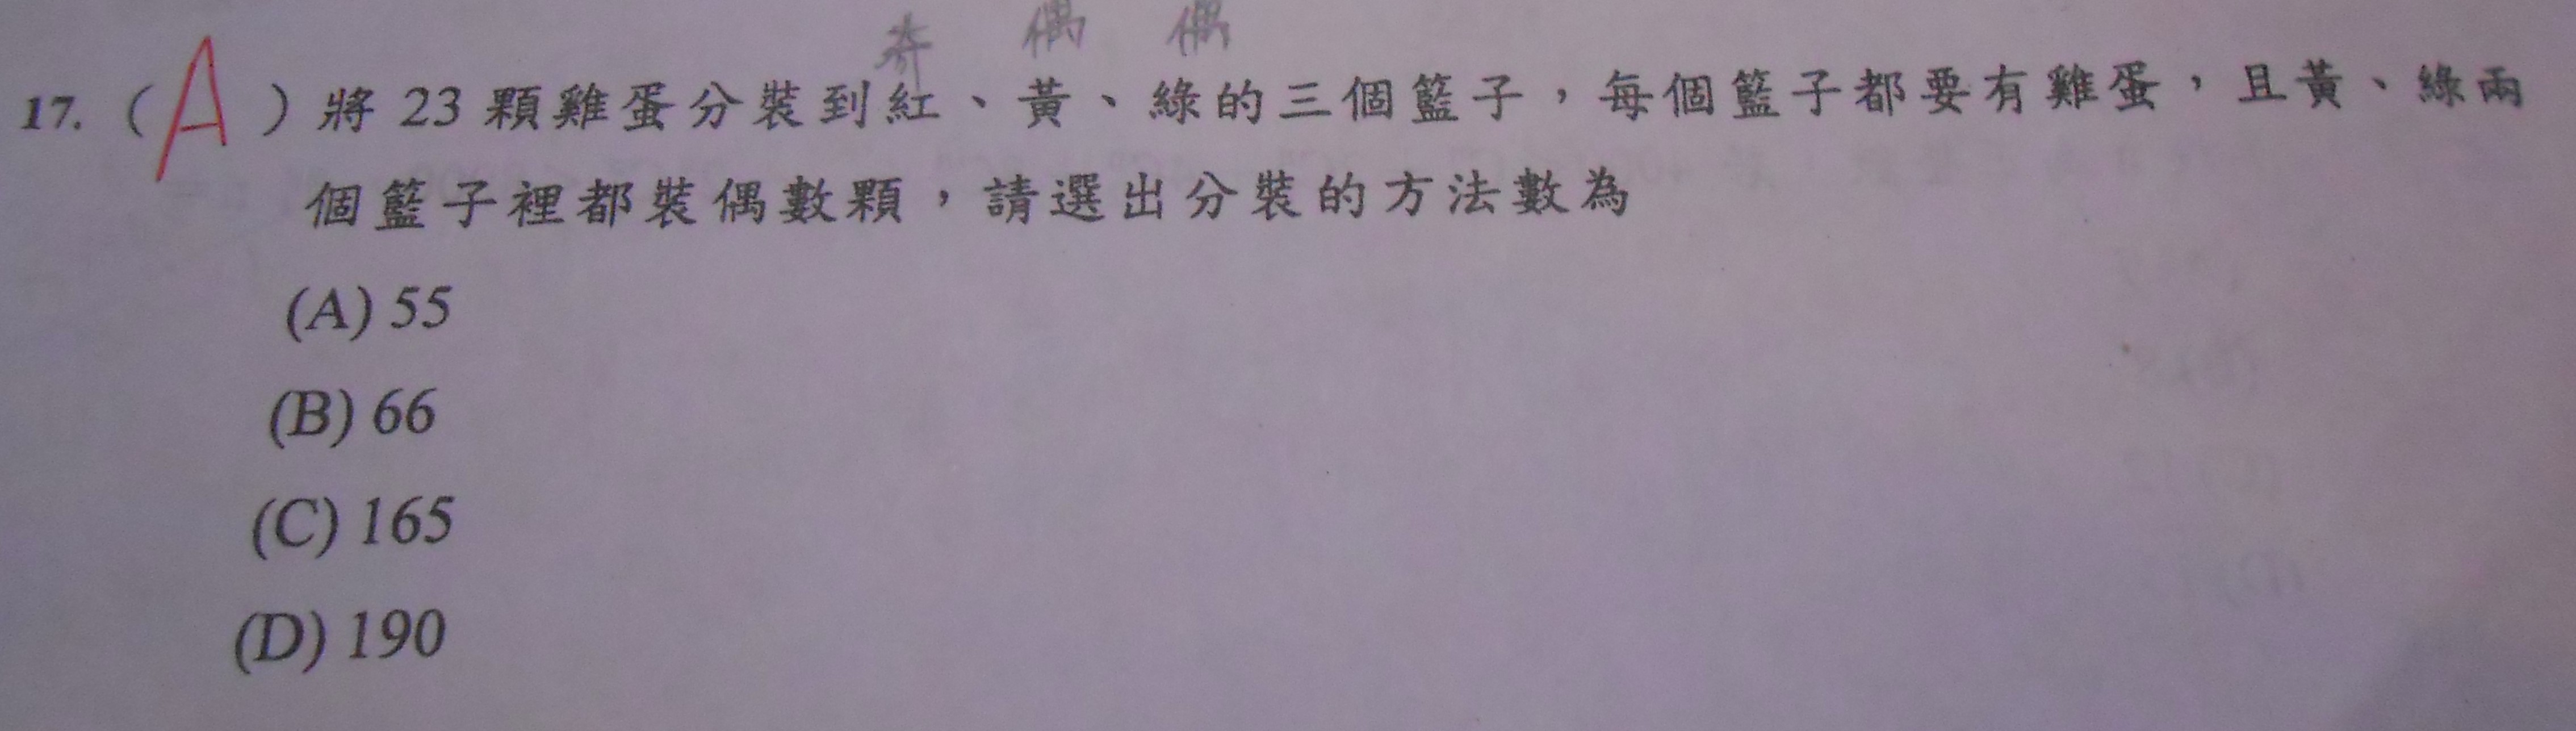 奇 偶 偶
17. ( A ) 將 23 顆雞蛋分裝到紅、黃、綠的三個籃子，每個籃子都要有雞蛋，且黃、綠兩
個籃子裡都裝偶數顆，請選出分裝的方法數為
(A) 55
(B) 66
(C) 165
(D) 190